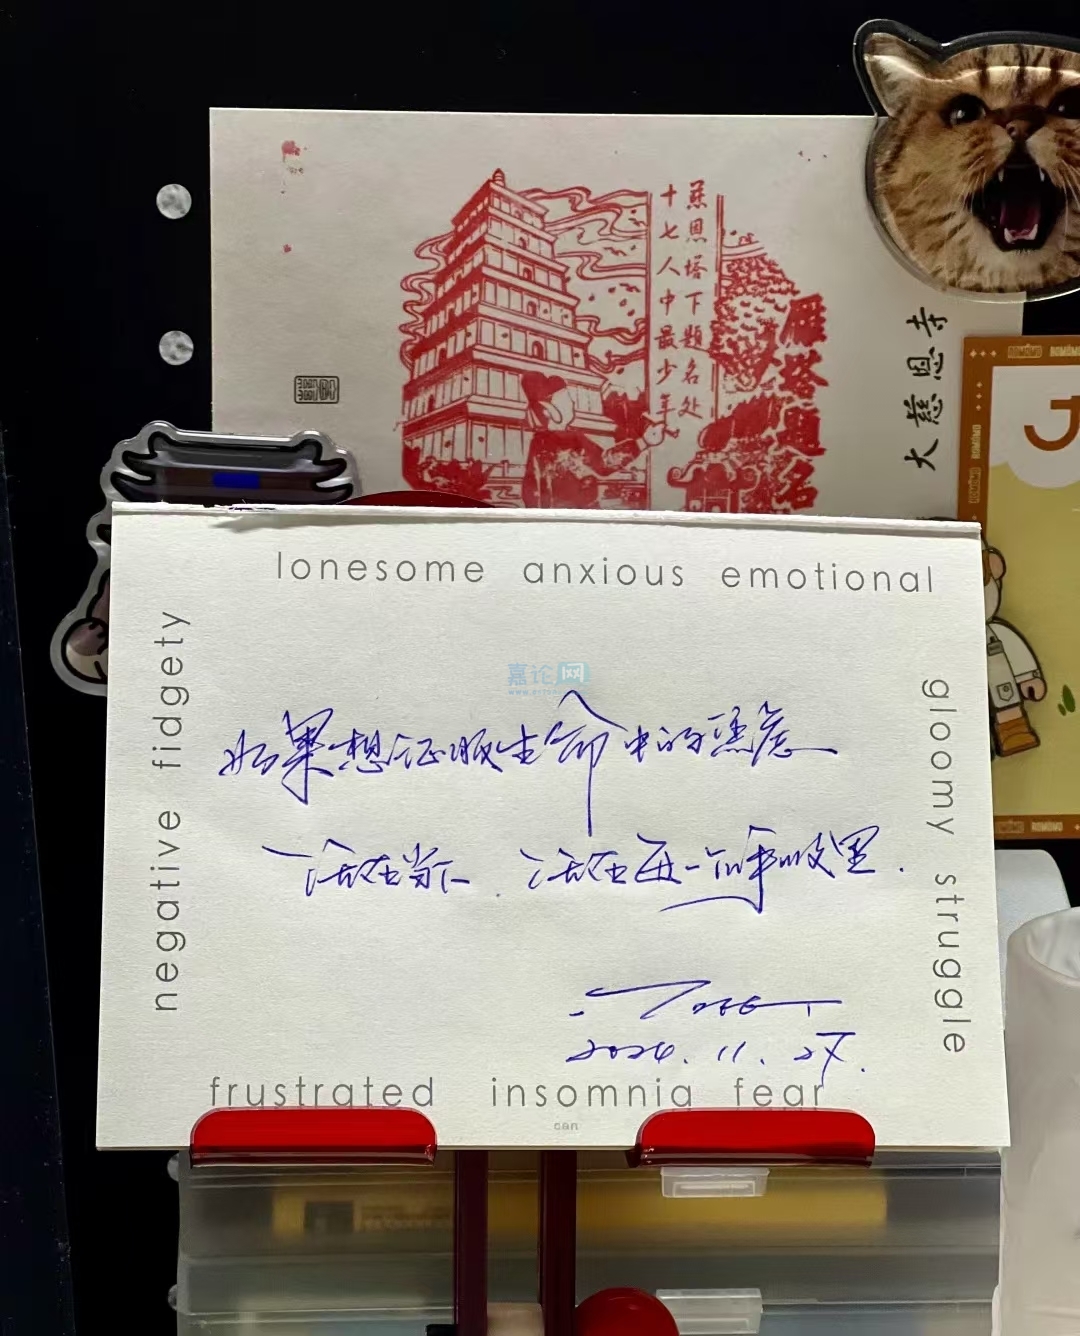 慈恩塔下题名处
十七人中最少年
雁塔题名
大慈恩寺
lonesome anxious emotional
negative fidgety
gloomy struggle
嘉论网
如果想征服生命中的焦虑
活在当下，活在每一个呼吸里．
2024.11.27.
frustrated insomnia fear
can